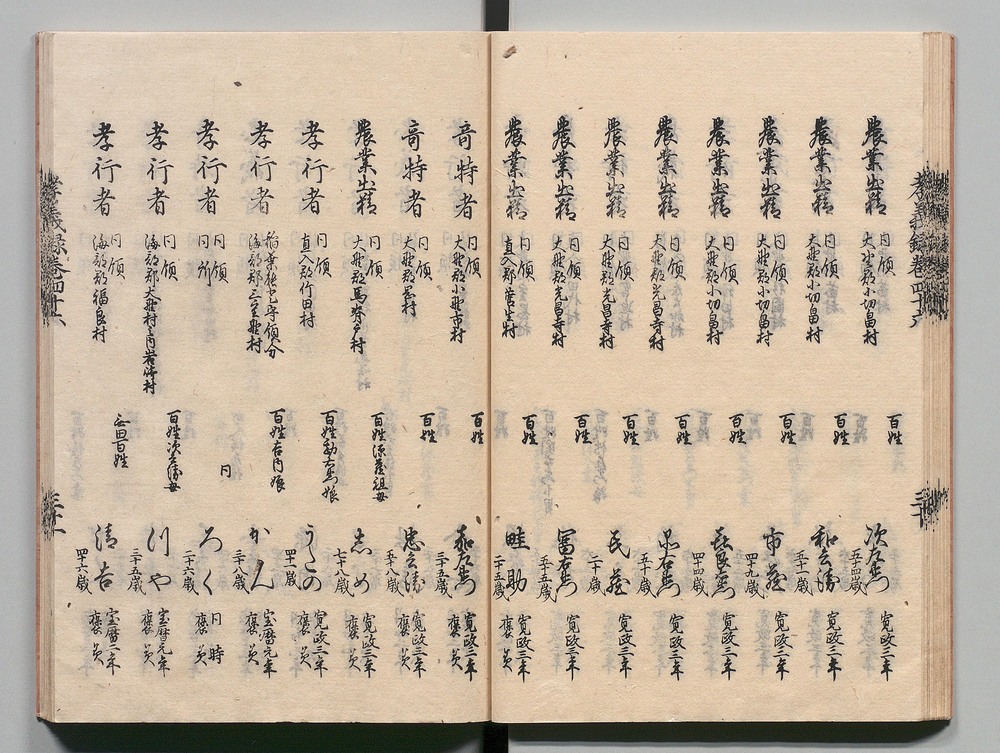 孝義録巻四十六
三十
農業出精 同領 大野郡小切畠村 百姓 次左衛門 五十四歳 寛政三年
農業出精 同領 大野郡小切畠村 百姓 和兵衛 五十一歳 寛政三年
農業出精 同領 大野郡小切畠村 百姓 市蔵 四十九歳 寛政三年
農業出精 同領 大野郡小切畠村 百姓 四十四歳 寛政三年
農業出精 同領 大野郡光昌寺村 百姓 五十歳 寛政三年
農業出精 同領 大野郡光昌寺村 百姓 民蔵 二十歳 寛政三年
農業出精 同領 大野郡光昌寺村 百姓 富右衛門 五十五歳 寛政三年
農業出精 同領 直入郡菅生村 百姓 畦助 二十五歳 寛政三年 褒美
奇特者 同領 大野郡小野市村 百姓 嘉左衛門 三十五歳 寛政三年 褒美
奇特者 同領 大野郡 村 百姓 忠兵衛 五十八歳 寛政三年 褒美
農業出精 同領 大野郡馬背戸村 百姓源蔵祖母 志め 七十八歳 寛政三年 褒美
孝行者 同領 直入郡竹田村 百姓勘右衛門娘 四十一歳 寛政三年 褒美
孝行者 稲葉能登守領分 海部郡三重野村 百姓右内娘 かん 三十八歳 宝暦元年 褒美
孝行者 同領 同所 同 ろく 二十六歳 同時 褒美
孝行者 同領 海部郡大野村之内岩崎村 百姓次兵衛母 つや 三十五歳 宝暦元年 褒美
孝行者 同領 海部郡福良村 百姓 清吉 四十六歳 宝暦二年 褒美
孝義録巻四十六
三十一